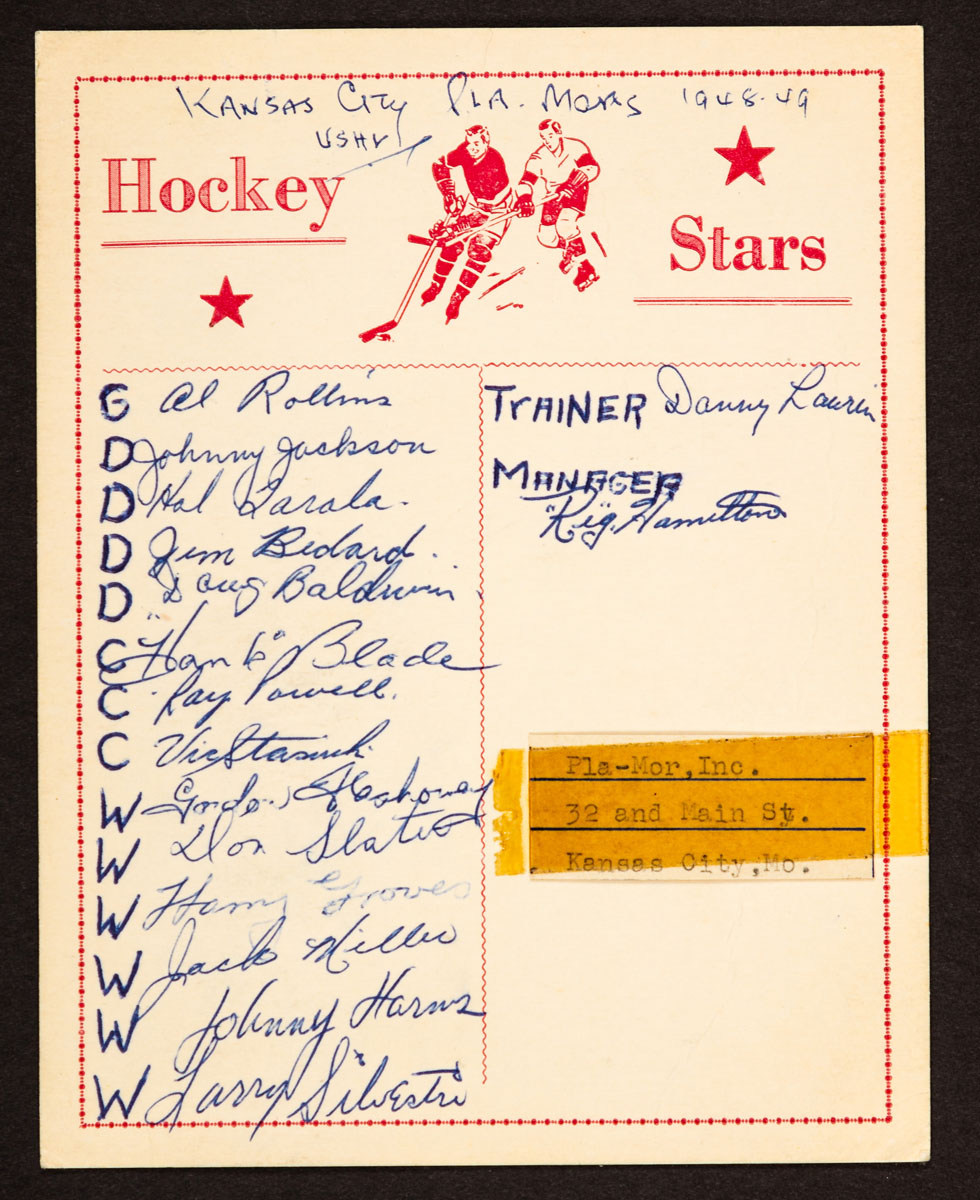 Kansas City Pla-Mors 1948-49
USHL
Hockey
Stars
G Al Rollins
D Johnny Jackson
D Hal Laxala.
D Jim Bedard.
D Doug Baldwin.
C "Hank" Blade
C Ray Powell.
C Vic Stasiuk.
W Gordon Hashoway
W Don Slater
W Harry Groves
W Jack Miller
W Johnny Harms
W Larry Silvestri
TrAINER Danny Laurin
MANAGER
"Reg. Hamilton
Pla-Mor,Inc.
32 and Main St.
Kansas City,Mo.